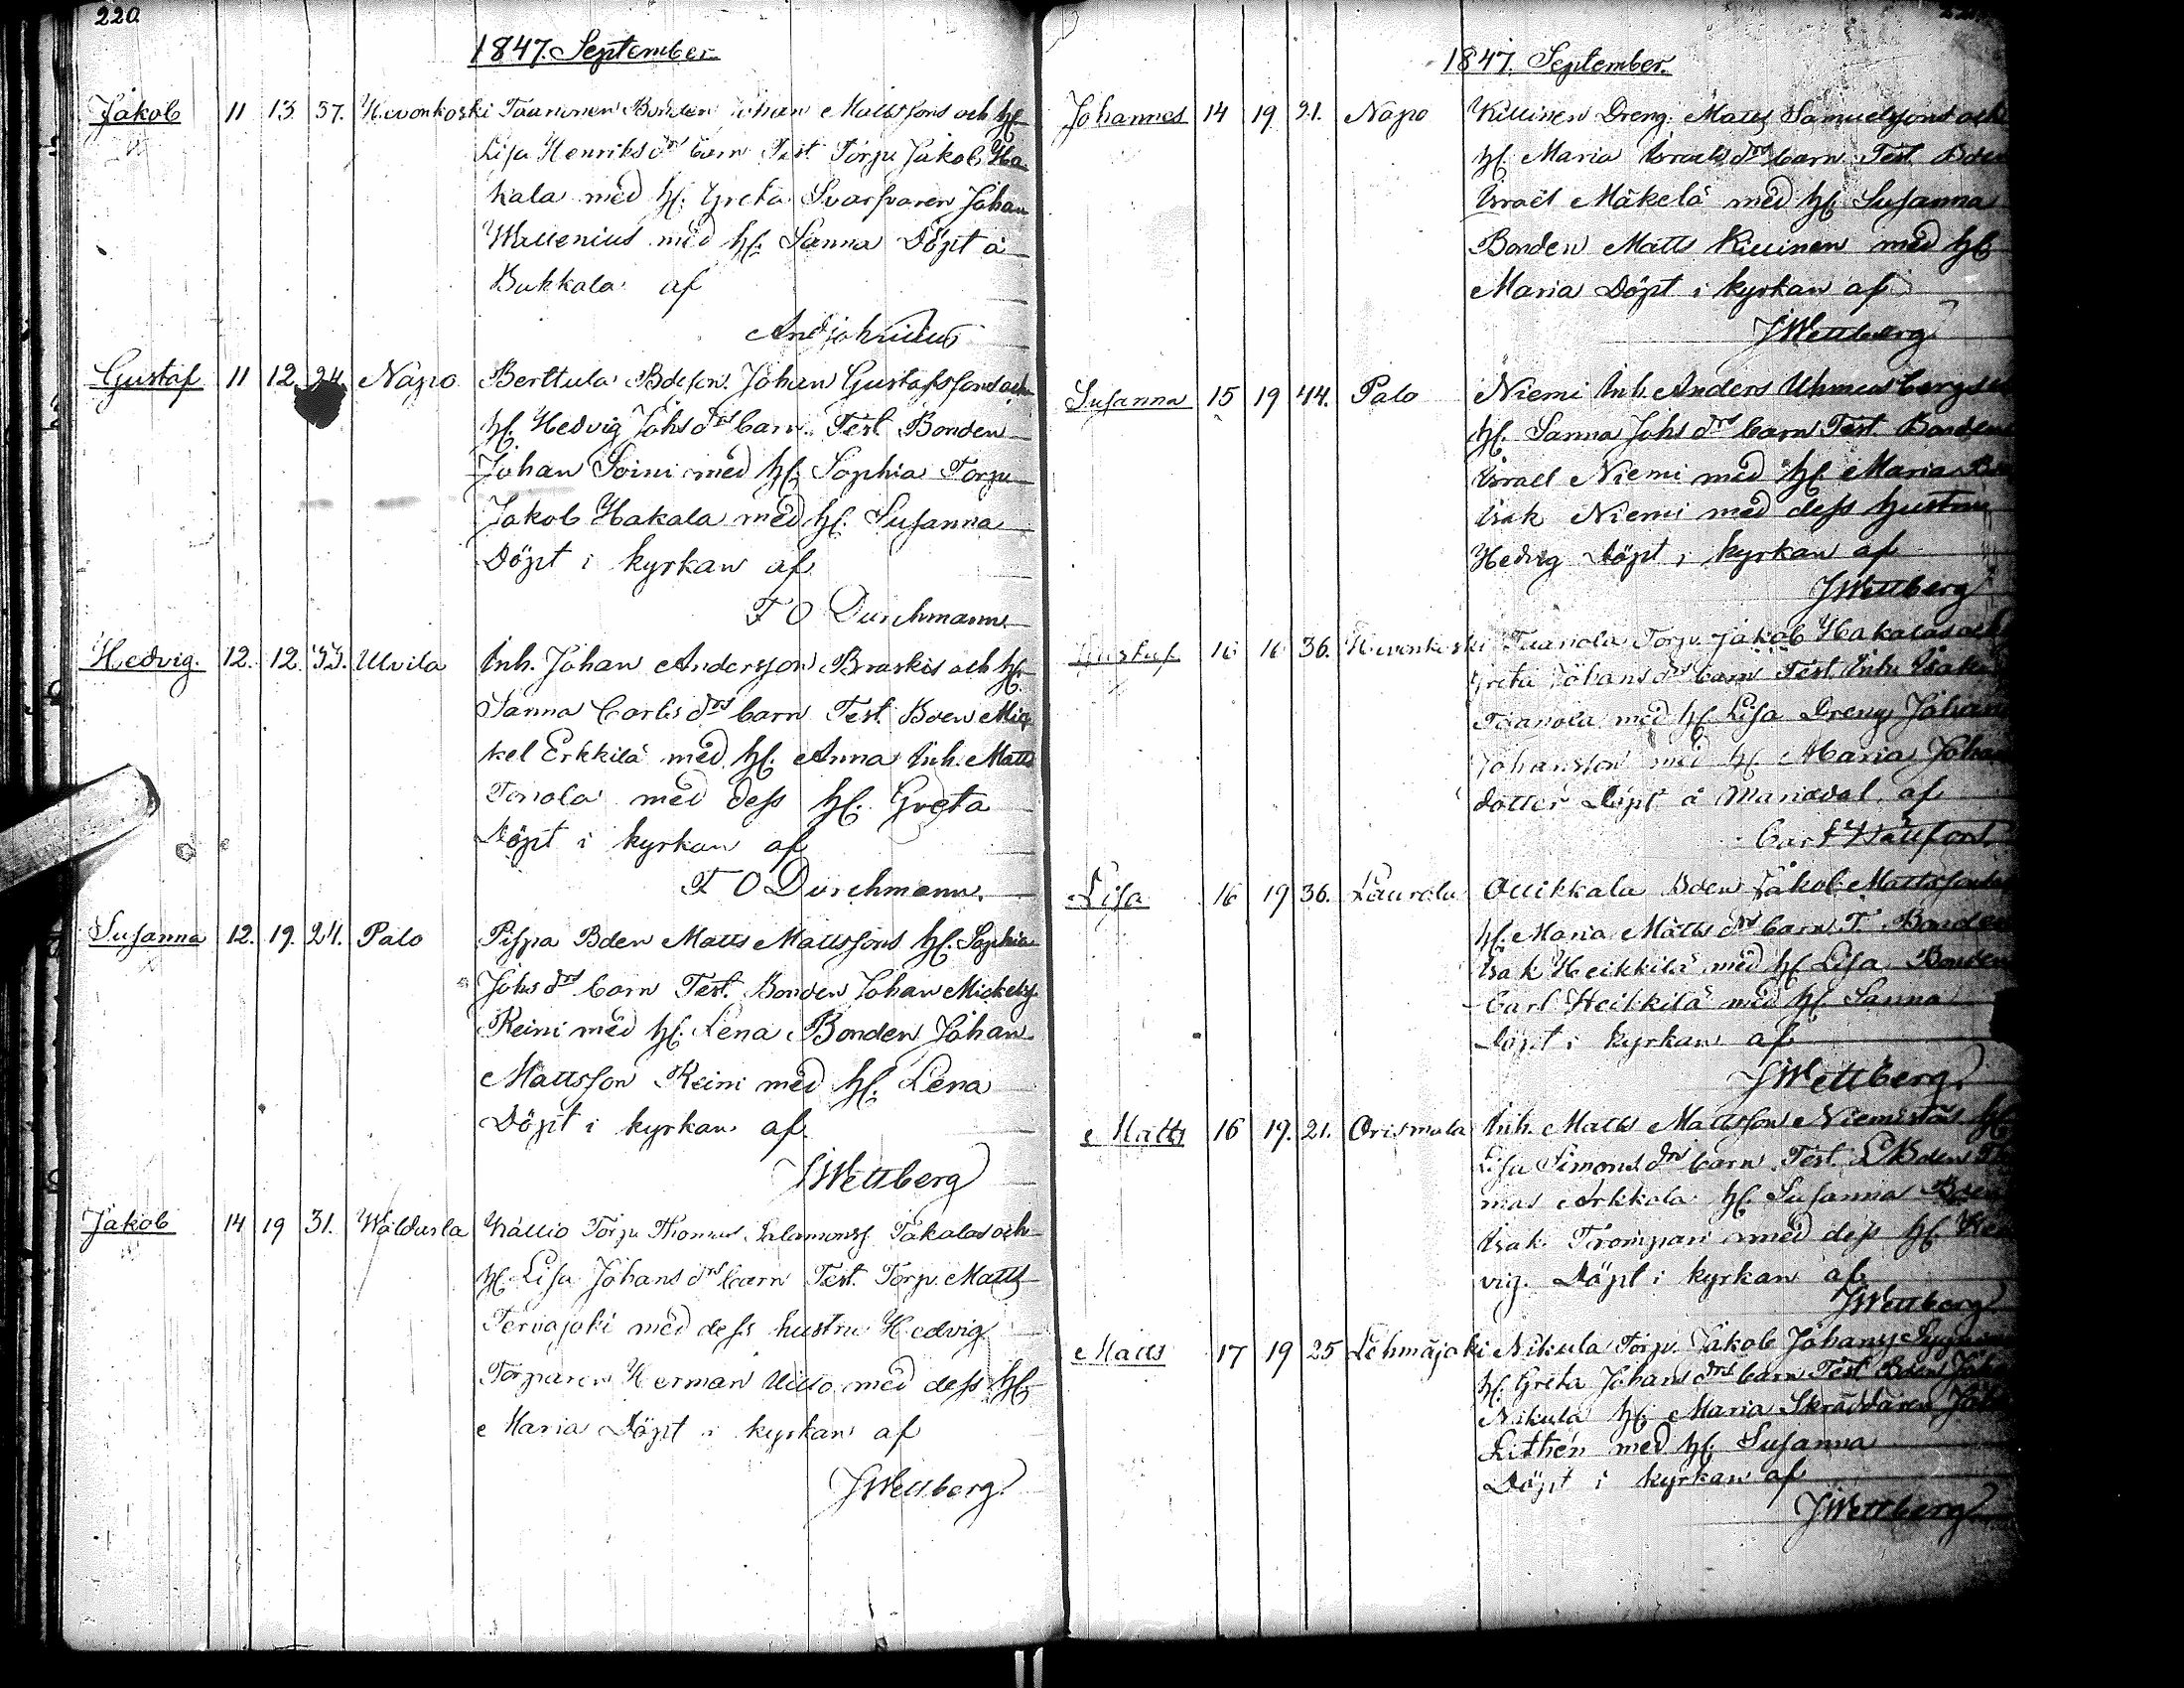 220.
1847. September
Jakob 11 13 37. Hirvonkoski Taaranen Bonden Johan Mattssons och hƒ.
Lisa Henriksdrs barn Test Torp. Jakob Ha
kala med hƒ. Greta Svarfvaren Johan
Wallenius med hƒ. Sanna Döpt å
Bukkala af
Gustaf 11 12 24. Napo Berttula Bdesson Johan Gustafssons och
hƒ. Hedvig Johsdrs barn. Test Bonden
Johan Soini med hƒ. Sophia Torp
Jakob Hakala med hƒ. Susanna
Döpt i kyrkan af
F O Durchmann.
Hedvig. 12. 12. 33. Ulvila Inh. Johan Andersson Braskis och hƒ.
Sanna Carlsdrs barn Test Bden Mic
kel Erkkilä med hƒ. Anna Inh. Matts
Toriola med dess hƒ. Greta
Döpt i kyrkan af
F O Durchmann.
Susanna 12. 19. 24. Palo Pispa Bden Matts Mattssons hƒ. Sophia
Johsdrs barn Test. Bonden Johan Mickelss.
Reini med hƒ. Lena Bonden Johan
Mattsson Reini med hƒ. Lena
Döpt i kyrkan af
J Wettberg
Jakob 14 19 31. Waldurla Kallio Torp Thomas Salamonss. Takalas och
hƒ. Lisa Johansdrs barn Test. Torp. Matts
Tervajoki med dess hustru Hedvig
Torparen Herman Uitto med dess hƒ.
Maria Döpt i kyrkan af
J Wettberg
1847. September.
Johannes 14 19 21. Napo Killinen Dreng. Matts Samuelssons och
hƒ. Maria Israelsdrs barn Test Bden
Israel Mäkelä med hƒ. Susanna
Bonden Matts Killinen med hƒ
Maria Döpt i kyrkan af
J Wettberg
Susanna 15 19 44. Palo Niemi Inh. Anders
hƒ. Sanna Johsdrs barn Test. Bonden
Israel Niemi med hƒ. Maria
Isak Niemi med dess hustru
Hedvig Döpt i kyrkan af
J Wettberg
Gustaf 16 16 36. Hirvonkoski Taanola Torp. Jakob Hakalas och
Greta Johansdrs barn Test Inh. Isak
Taanola med hƒ. Lisa Dreng Johan
Johansson med hƒ. Maria Johan
dotter Döpt å Mariedal af
Lisa 16 19 36. Laurola Ollikkala Bden Jakob Mattssons
hƒ. Maria Mattsdrs barn T. Bonden
Isak Heikkilä med hƒ Lisa Bonden
Carl Heikkilä med hƒ. Sanna
Döpt i kyrkan af
J Wettberg.
Matts 16 19. 21. Orismala Inh. Matts Mattsson Niemistös hƒ
Lisa Simonsdrs barn Test. LBden Tho
mas Arkkola hƒ. Susanna Bden
Isak Trompari med dess hƒ. Hed
vig. Döpt i kyrkan af
J Wettberg
Matts 17 19 25 Lehmäjoki Nikula Torp. Jakob Johanss
hƒ. Greta Johansdrs barn Test Bden Joh
Nikula hƒ. Maria Skräddaren
Lithén med hƒ. Susanna
Döpt i kyrkan af
J Wettberg